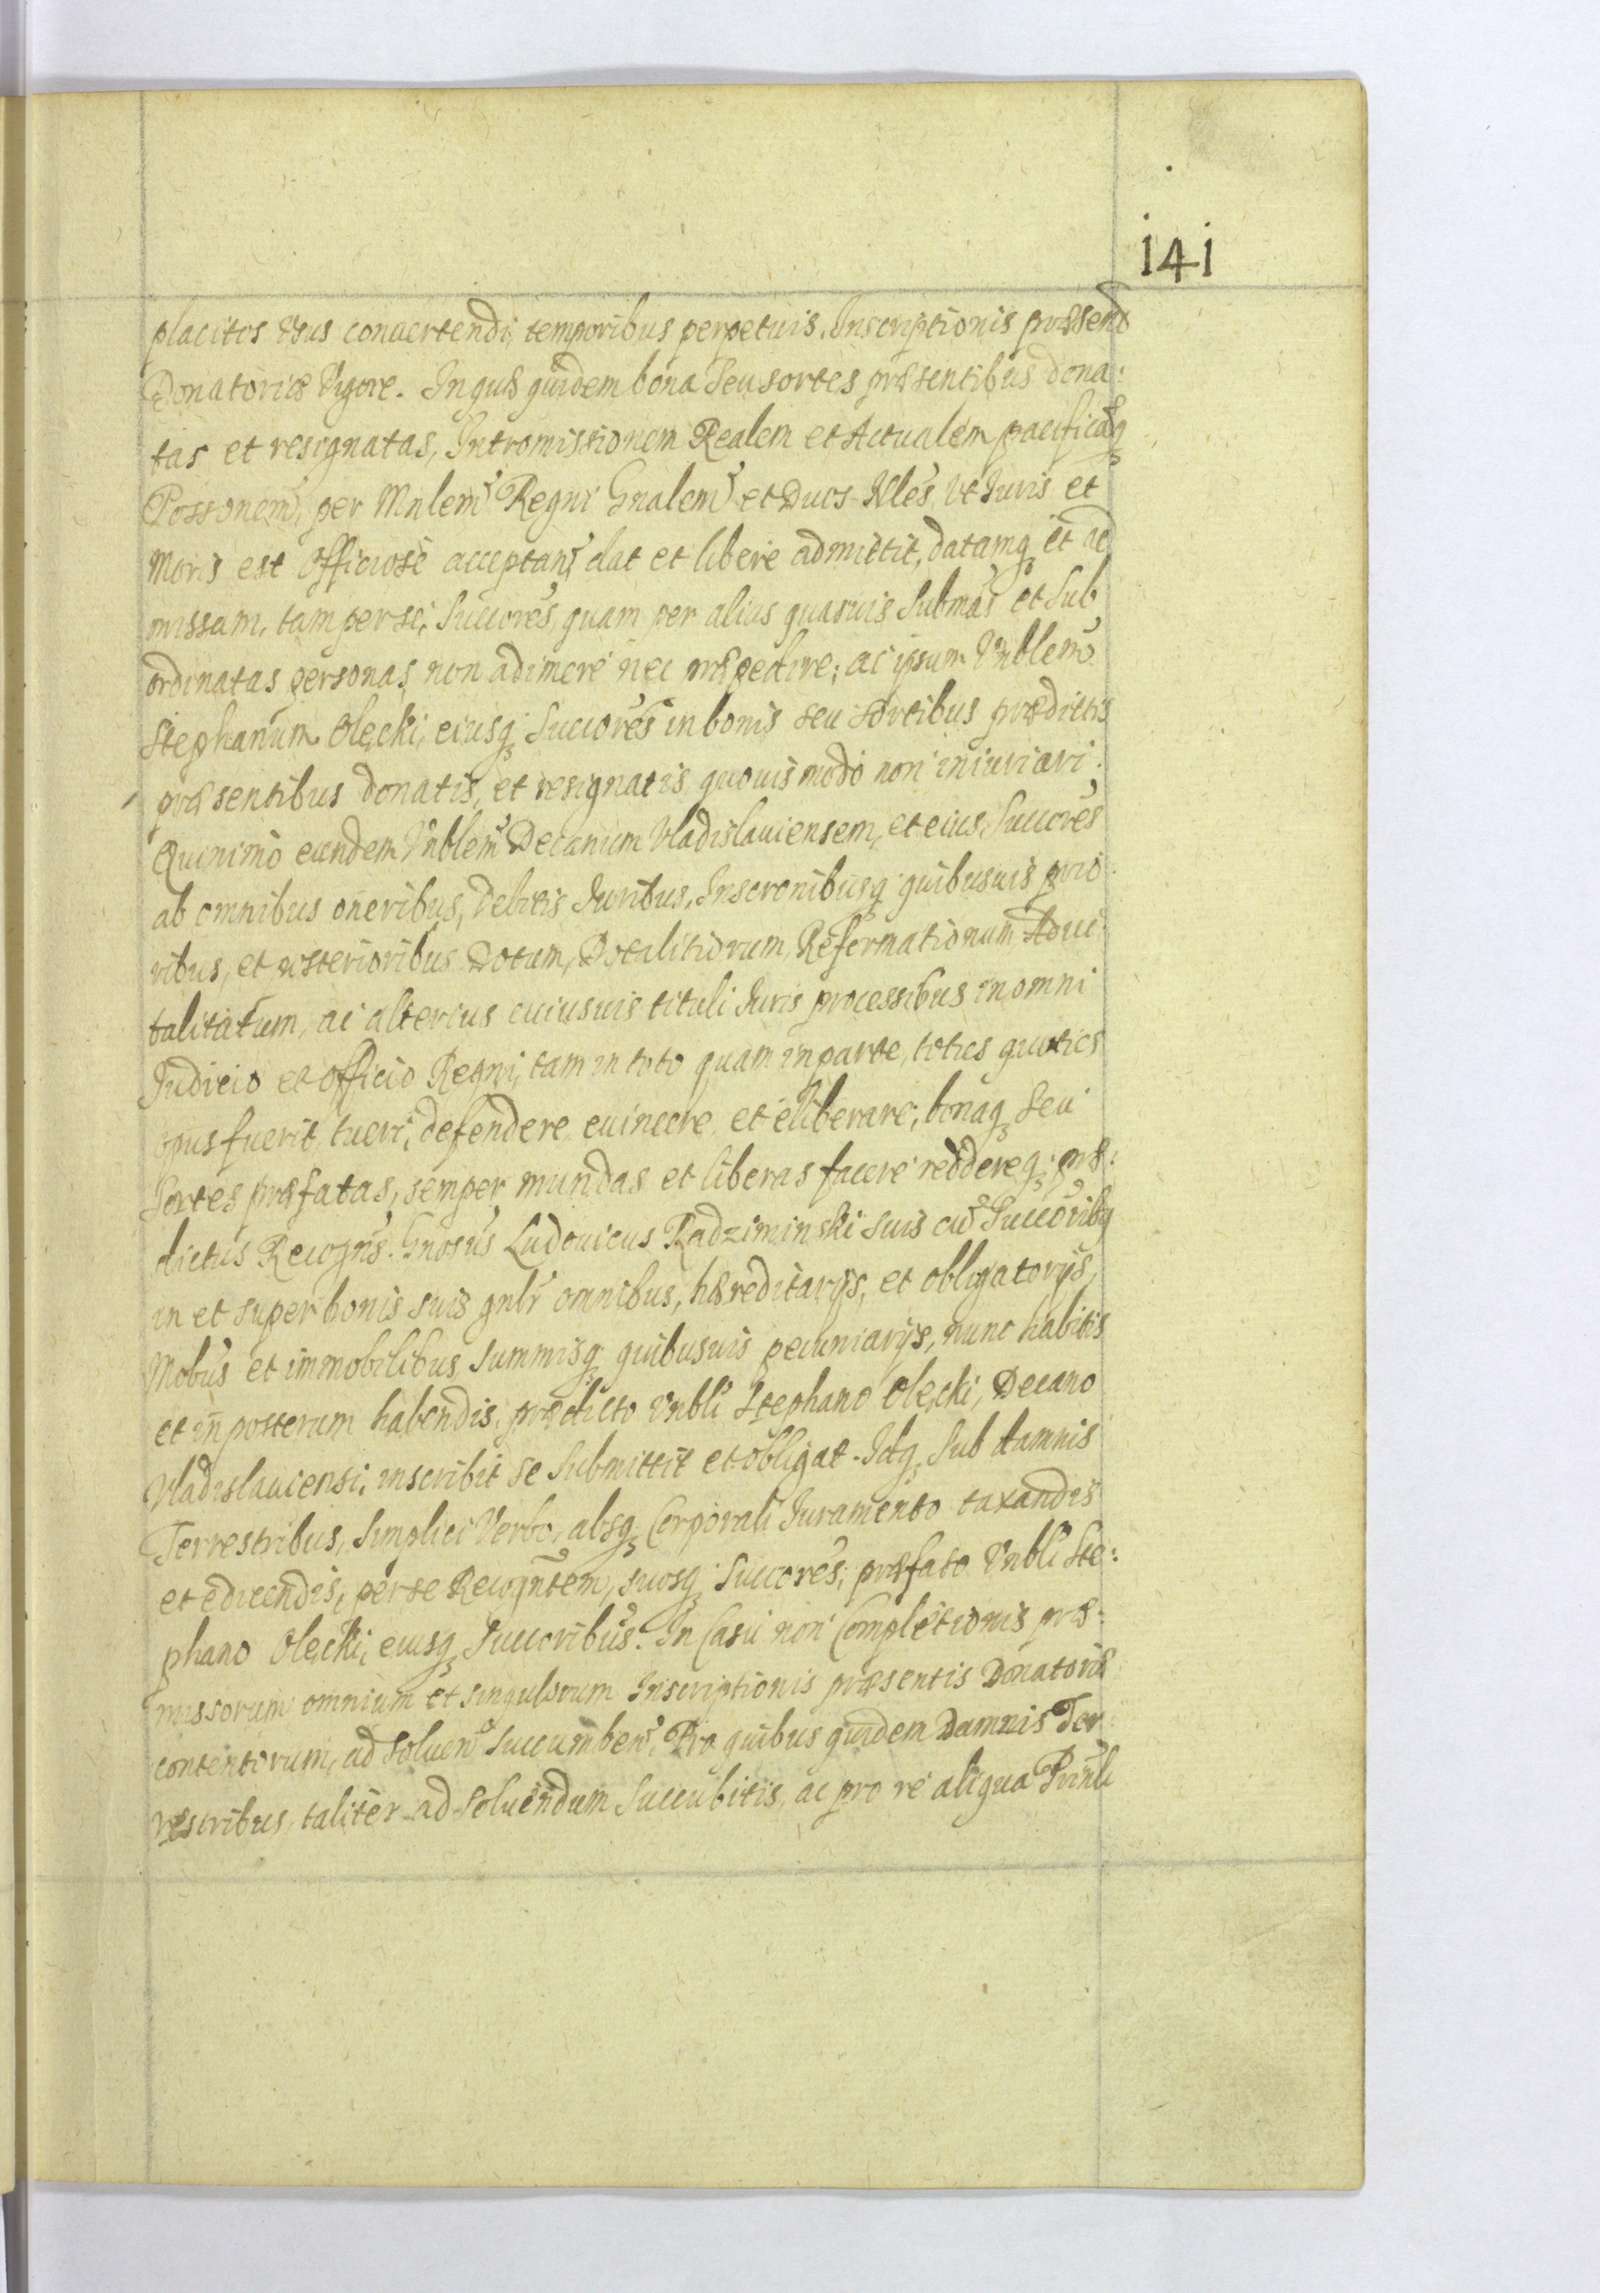 141
placitos Vsus conuertendi, temporibus perpetuis, Inscriptionis præsent
Donatoriæ Vigore. In quæ quidem bona Seu sortes præsentibus dona:
tas et resignatas, Intromissionem Realem et Actualem pacificāq
Possonem, per Mnlem Regni Gnalem et Ducs Nles, Vt Iuris et
Moris est Officiose acceptan dat et libere admittit, datamq et ad
missam, tam per se, Succores, quam per alias quasuis Submas et Sub
ordinatas personas, non adimere nec præpedire; ac ipsum Vnblem
Stephanum Olęcki, eiusq Succores in bonis seu sortibus prædictis
præsentibus donatis, et resignatis quouismodo non iniuriari.
Quinimo eundem Vnblem Decanum Vladislauiensem, et eius Succores
ab omnibus oneribus, debitis Iuribus, Inscronibusq quibusuis prio
ribus, et posterioribus Dotum, Dotalitiorum Reformationum Adui
talitatum, ac alterius cuiusuis tituli Iuris processibus in omni
Iudicio et Officio Regni, tam in toto quam in parte, toties quoties
opus fuerit, tueri, defendere euincere et eliberare, bonaq seu
Sortes præfatas, semper mundas et liberas facere reddereq; præ:
dictus Recogns. Gnosus Ludouicus Radziminski suis cū Succoribq
in et super bonis suis gnlr omnibus, hæreditarijs, et obligatorijs,
Mobus et immobilibus, Summisq quibusuis pecuniarijs, nunc habitis
et in posterum habendis, prædicto Vnbli Stephano Olęcki, Decano
Vladislauiensi, inscribit se Submittit et obligat. Idq Sub damnis
Terrestribus, Simplici Verbo, absq Corporali Iuramento taxandis
et edicendis, per se Recogntem, suosq Succores, præfato Vnbli Ste:
phano Olęcki, eiusq Succoribus. In Casu non Completionis præ:
missorum omnium et singulorum Inscriptionis præsentis Donatoriæ
contentorum, ad soluen Succumben. Pro quibus quidem Damnis Ter
restribus, taliter ad Soluendum Succubitis, ac pro re aliqua Prinli